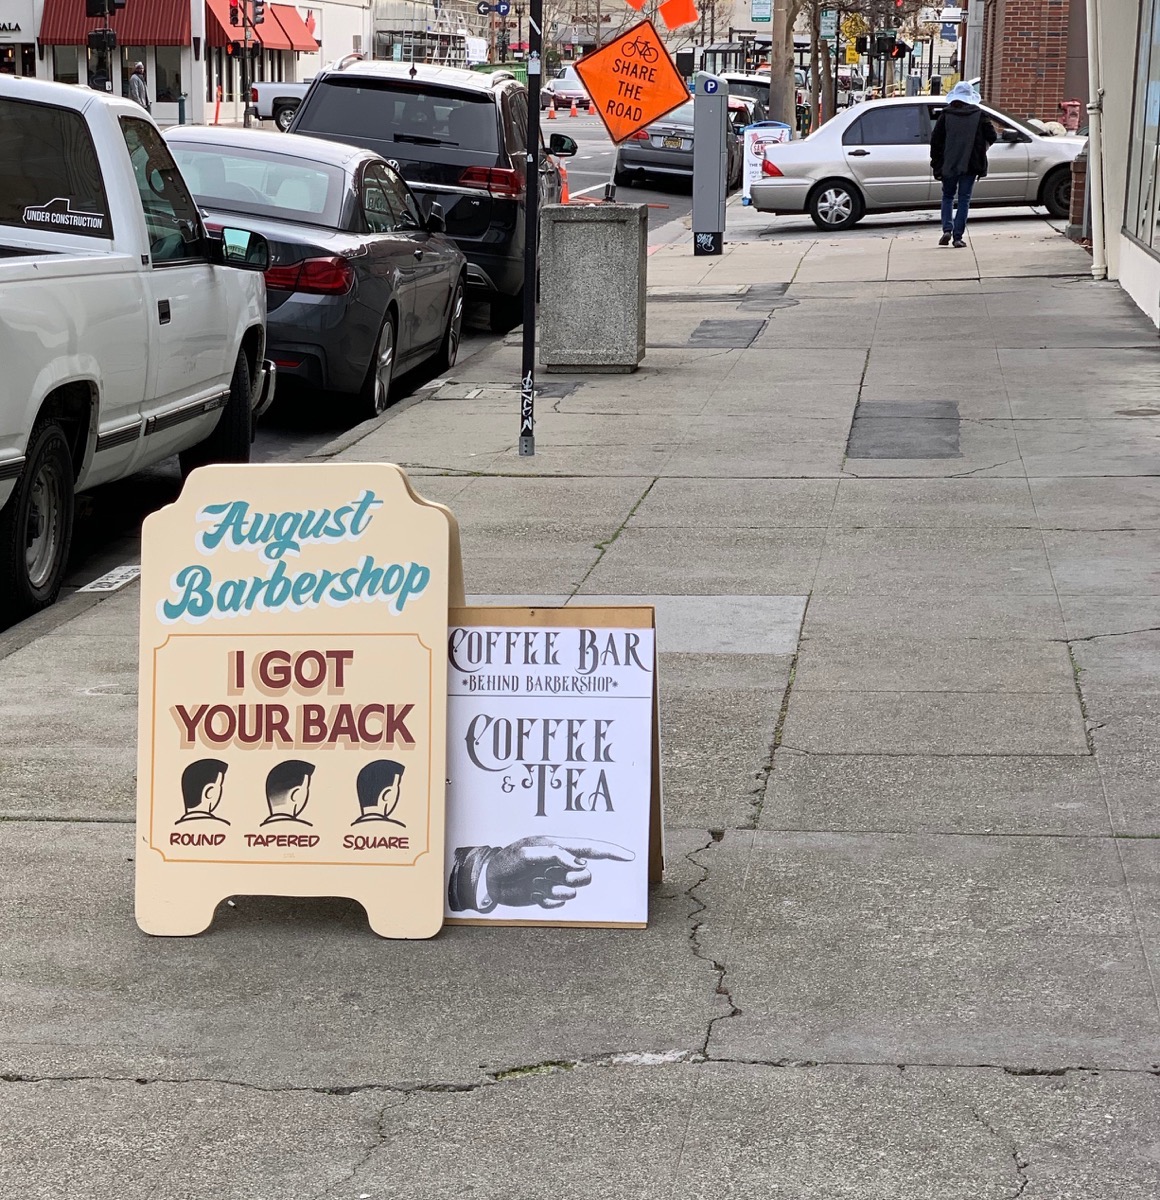 UNDER CONSTRUCTION
SHARE
THE
ROAD
P
P
August
Barbershop
I GOT
YOUR BACK
ROUND TAPERED SQUARE
COFFEE BAR
•BEHIND BARBERSHOP•
COFFEE
& TEA